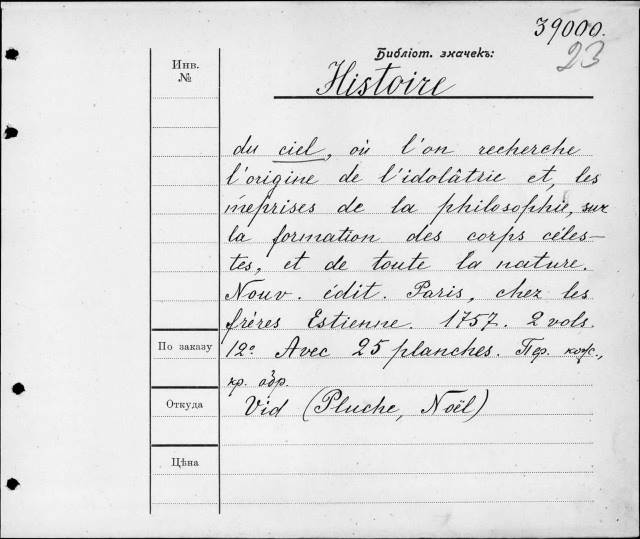 39000.
23
Инв.
№
Библіот. значекъ:
Histoire
du ciel, où l'on recherche
l'origine de l'idolâtrie et, les
méprises de la philosophie, sur
la formation des corps céles-
tes, et de toute la nature.
Nouv. édit. Paris, chez les
fréres Estienne. 1757. 2 vols.
По заказу
12º Avec 25 planches. Пер. кож.,
кр. обр.
Откуда
Vid (Pluche, Noël)
Цѣна